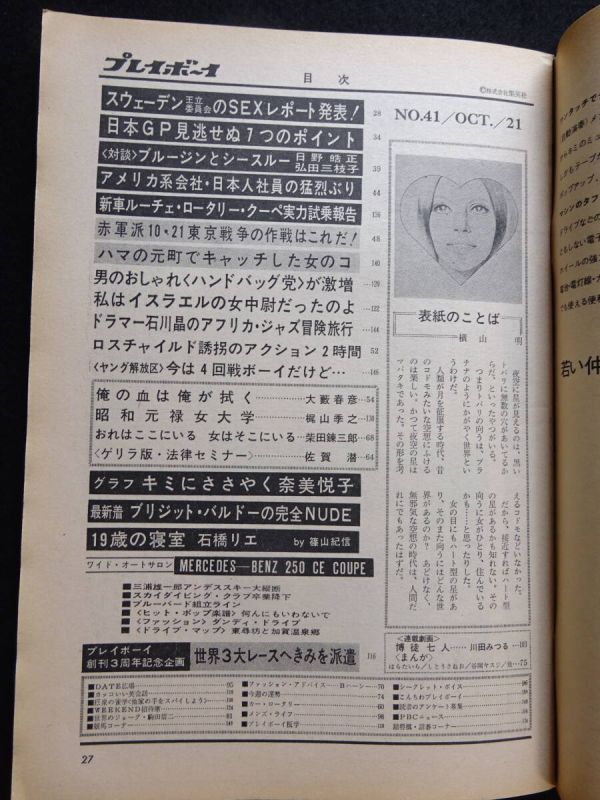 プレイボーイ
目次
©株式会社集英社
スウェーデン王立委員会のSEXレポート発表! 28
日本GP見逃せぬ7つのポイント 34
〈対談〉ブルージンとシースルー 日野皓正 弘田三枝子 39
アメリカ系会社・日本人社員の猛烈ぶり 44
新車ルーチェ・ロータリー・クーペ実力試乗報告 136
赤軍派10・21東京戦争の作戦はこれだ! 48
ハマの元町でキャッチした女のコ 140
男のおしゃれ〈ハンドバッグ党〉が激増 129
私はイスラエルの女中尉だったのよ 122
ドラマー石川晶のアフリカ・ジャズ冒険旅行 144
ロスチャイルド誘拐のアクション2時間 52
〈ヤング解放区〉今は4回戦ボーイだけど… 146
俺の血は俺が拭く 大藪春彦 54
昭和元禄女大学 梶山季之 130
おれはここにいる 女はそこにいる 柴田錬三郎 68
〈ゲリラ版・法律セミナー〉 佐賀潜 64
グラフ キミにささやく奈美悦子
最新着 ブリジット・バルドーの完全NUDE
19歳の寝室 石橋リエ by 篠山紀信
ワイド・オートサロン MERCEDES-BENZ 250 CE COUPE
■三浦雄一郎アンデススキー大縦断
■スカイダイビング・クラブ卒業降下
■ブルーバード組立ライン
■〈ヒット・ポップ楽譜〉何んにもいわないで
■〈ファッション〉ダンディ・ドライブ
■〈ドライブ・マップ〉東尋坊と加賀温泉郷
プレイボーイ創刊3周年記念企画 世界3大レースへきみを派遣 116
NO.41/OCT./21
表紙のことば
横山 明
夜空に星が見えるのは、黒い
トバリに無数の穴があいてるか
らだ、といったやつがいる。
つまりトバリの向うは、プラ
チナのようにかがやく世界とい
うわけだ。
人類が月を征服する時代、昔
のコドモみたいな空想にふける
のは楽しい。かつて夜空の星は
マバタキであった。その形を考
えるコドモなどいなかった。
だから、接近すればハート型
の星があるかも知れない。その
向うに女がひとり、住んでいる
かも……と思ったりした。
女の目にもハート型の星があ
り、そのまた向うにはどんな世
界があるのか? あどけなく、
無邪気な空想の時代は、人間だ
れにでもあったはずだ。
〈連載劇画〉
博徒七人……川田みつる
〈まんが〉
はらたいら/しとうきねお/谷岡ヤスジ/他…75
■DATE広場 95
■カッコいい英会話
■WEEKEND招待席
■世界のジョーク・駒田信二 81
■競馬コーナー
■ファッション・アドバイス
■今週の運勢 74
■カー・ロータリー 60
■メンズ・ライフ 98
■プレイボーイ医学
■シークレット・ボイス 96
■こんちわプレイボーイ
■読者のアンケート募集
■PBCニュース
27
若い仲